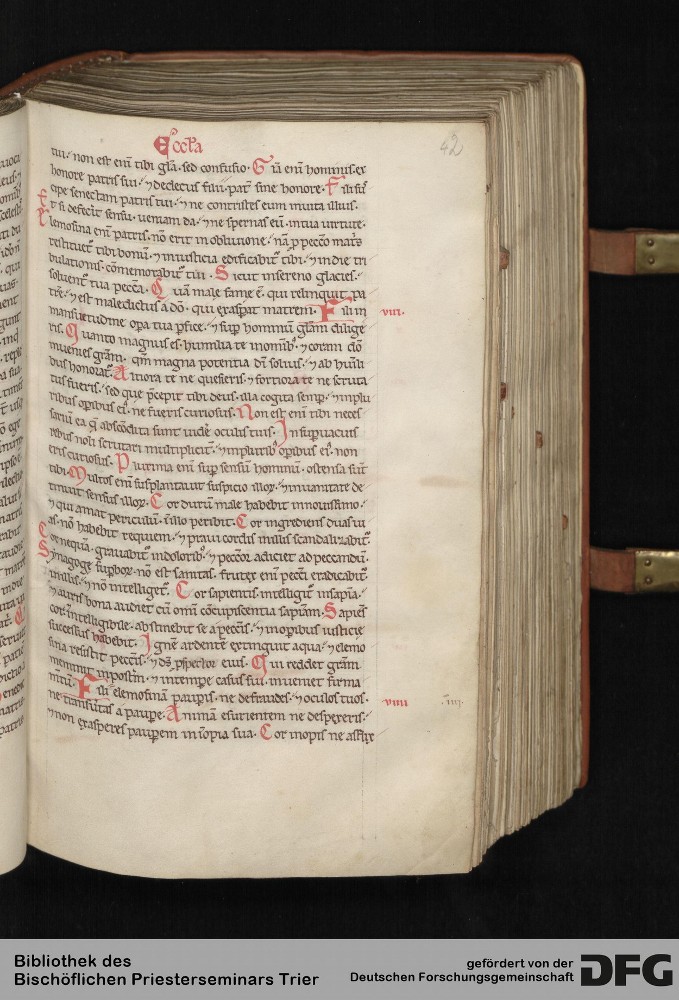 Eccl'a
42
tui. non est eni tibi gl'a. sed confusio. Gl'ia eni hominis ex
honore patris sui. ⁊ dedecus filii. pat' sine honore. Fili sus
cipe senectam patris tui. ⁊ ne contristes eum in uita illius.
Et si defecerit sensu. ueniam da. ⁊ ne spernas eu. in tua uirtute.
Elemosina eni patris. no erit in obliuione. na p peccō matis
restituet' tibi bonū. ⁊ in iusticia edificabit' tibi. ⁊ in die tri
bulationis cōmemorabit' tui. Sicut in sereno glacies.
soluent' tua pecc'a. Quā male fame ē. qui relinquit pa
trē. ⁊ est maledictus a dō. qui exaspat matrem. Fili in
viii.
mansuetudine opa tua pfice. ⁊ sup hominū gl'am dilige
ris. Quanto magnus es. humilia te in omib'. ⁊ coram dō
inuenies grām. qm magna potentia dei solius. ⁊ ab humili
bus honorat'. Altiora te ne quesieris. ⁊ fortiora te ne scruta
tus fueris. sed que pcepit tibi deus. illa cogita semp. ⁊ in plu
ribus opibus ei'. ne fueris curiosus. Non est eni tibi neces
sariū ea q abscōdita sunt uidē oculis tuis. In supuacuis
rebus noli scrutari multiplicit'. ⁊ in plurib' opibus ei'. non
eris curiosus. Plurima eni sup sensū hominū. ostensa sūt
tibi. Multos eni supplantauit suspicio illoꝝ. ⁊ in uanitate de
tinuit sensus illoꝝ. Cor durū male habebit in nouissimo.
⁊ qui amat periculū. in illo peribit. Cor ingrediens duas ui
as. nō habebit requiem. ⁊ praui cordis in illis scandalizabit'.
Cor nequā. grauabit' in dolorib'. ⁊ peccor adiciet ad peccandū.
Synagoge supboꝝ. nō est sanitas. frutex eni pecci eradicabit'
in illis. ⁊ nō intelliget'. Cor sapientis intelligit' in sapīa.
⁊ auris bona audiet cū omi cōcupiscentia sapiam. Sapiēs
cor ⁊ intelligibile. abstinebit se a pecc'is. ⁊ in opibus iusticie
successus habebit. Ignē ardentē extinguit aqua. ⁊ elemo
sina resistit pecc'is. ⁊ ds pspector eius. Qui reddet grām
meminit in postm. ⁊ in tempe casus sui. inueniet firma
mtū. Fili elemosinā pauperis. ne defraudes. ⁊ oculos tuos.
ne transuertas a paupe. Animā esurientem ne despexeris.
viiii
.iiii.
⁊ non exasperes paupem in inopia sua. Cor inopis ne afflix
Bibliothek des
Bischöflichen Priesterseminars Trier
gefördert von der
Deutschen Forschungsgemeinschaft
DFG